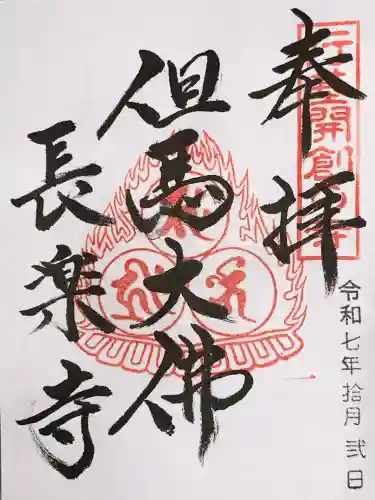 奉拝
行基開創の寺
令和七年拾月弐日
但馬大佛
長楽寺